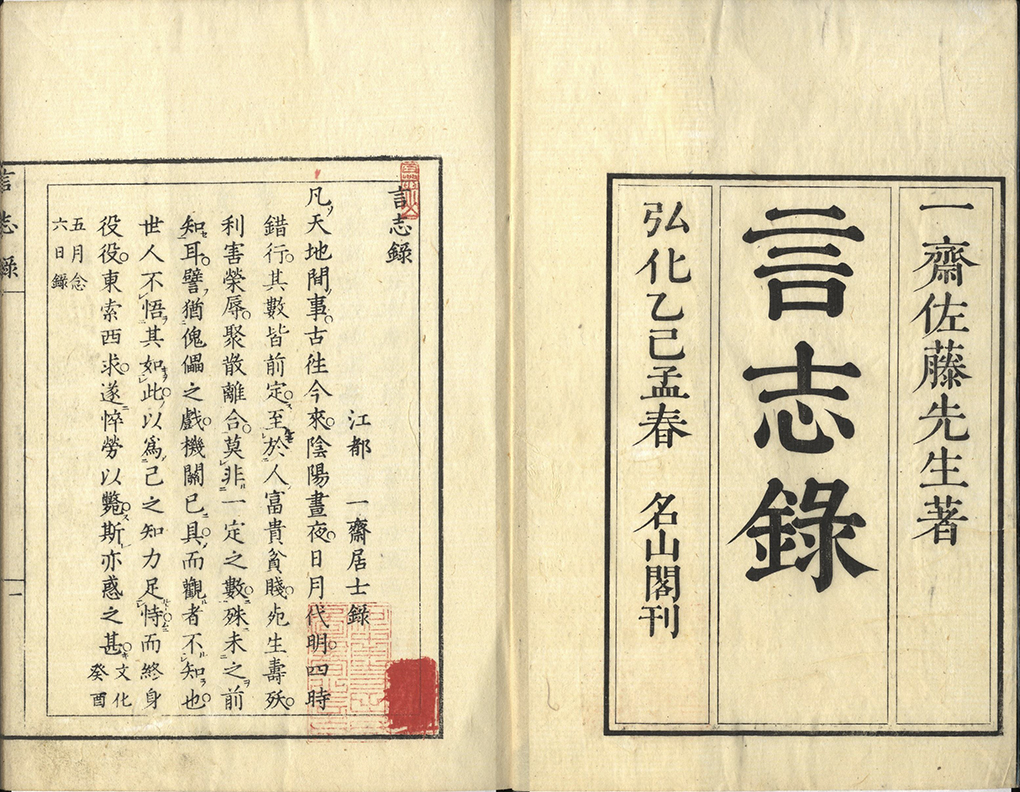 一齋佐藤先生著
言志錄
弘化乙巳孟春　名山閣刊
言志錄
江都　一齋居士錄
凡天地間事。古往今來。陰陽晝夜。日月代明。四時
錯行。其數皆前定。至於人富貴貧賤。死生壽殀。
利害榮辱。聚散離合。莫非一定之數。殊未之前
知耳。譬猶傀儡之戲。機關已具。而觀者不知也。
世人不悟其如此。以爲己之知力足恃。而終身
役役。東索西求。遂悴勞以斃。斯亦惑之甚。文化癸酉
五月念六日錄
言志錄
一